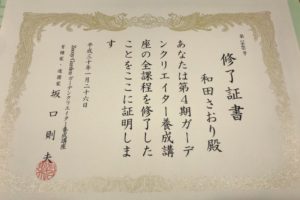 修了証書
和田さおり殿
あなたは第4期ガーデ
ンクリエイター養成講
座の全課程を修了した
ことをここに証明しま
す
平成三十年一月二十六日
Innocent Gardenガーデンクリエイター養成講座
坂口則夫